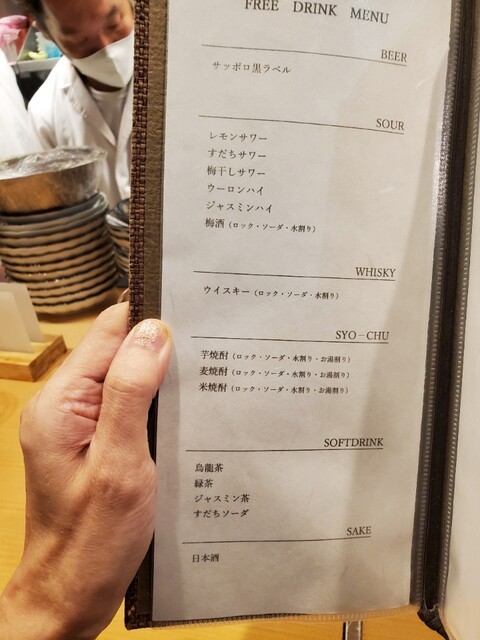 FREE DRINK MENU
BEER
サッポロ黒ラベル
SOUR
レモンサワー
すだちサワー
梅干しサワー
ウーロンハイ
ジャスミンハイ
梅酒（ロック・ソーダ・水割り）
WHISKY
ウイスキー（ロック・ソーダ・水割り）
SYO－CHU
芋焼酎（ロック・ソーダ・水割り・お湯割り）
麦焼酎（ロック・ソーダ・水割り・お湯割り）
米焼酎（ロック・ソーダ・水割り・お湯割り）
SOFTDRINK
烏龍茶
緑茶
ジャスミン茶
すだちソーダ
SAKE
日本酒